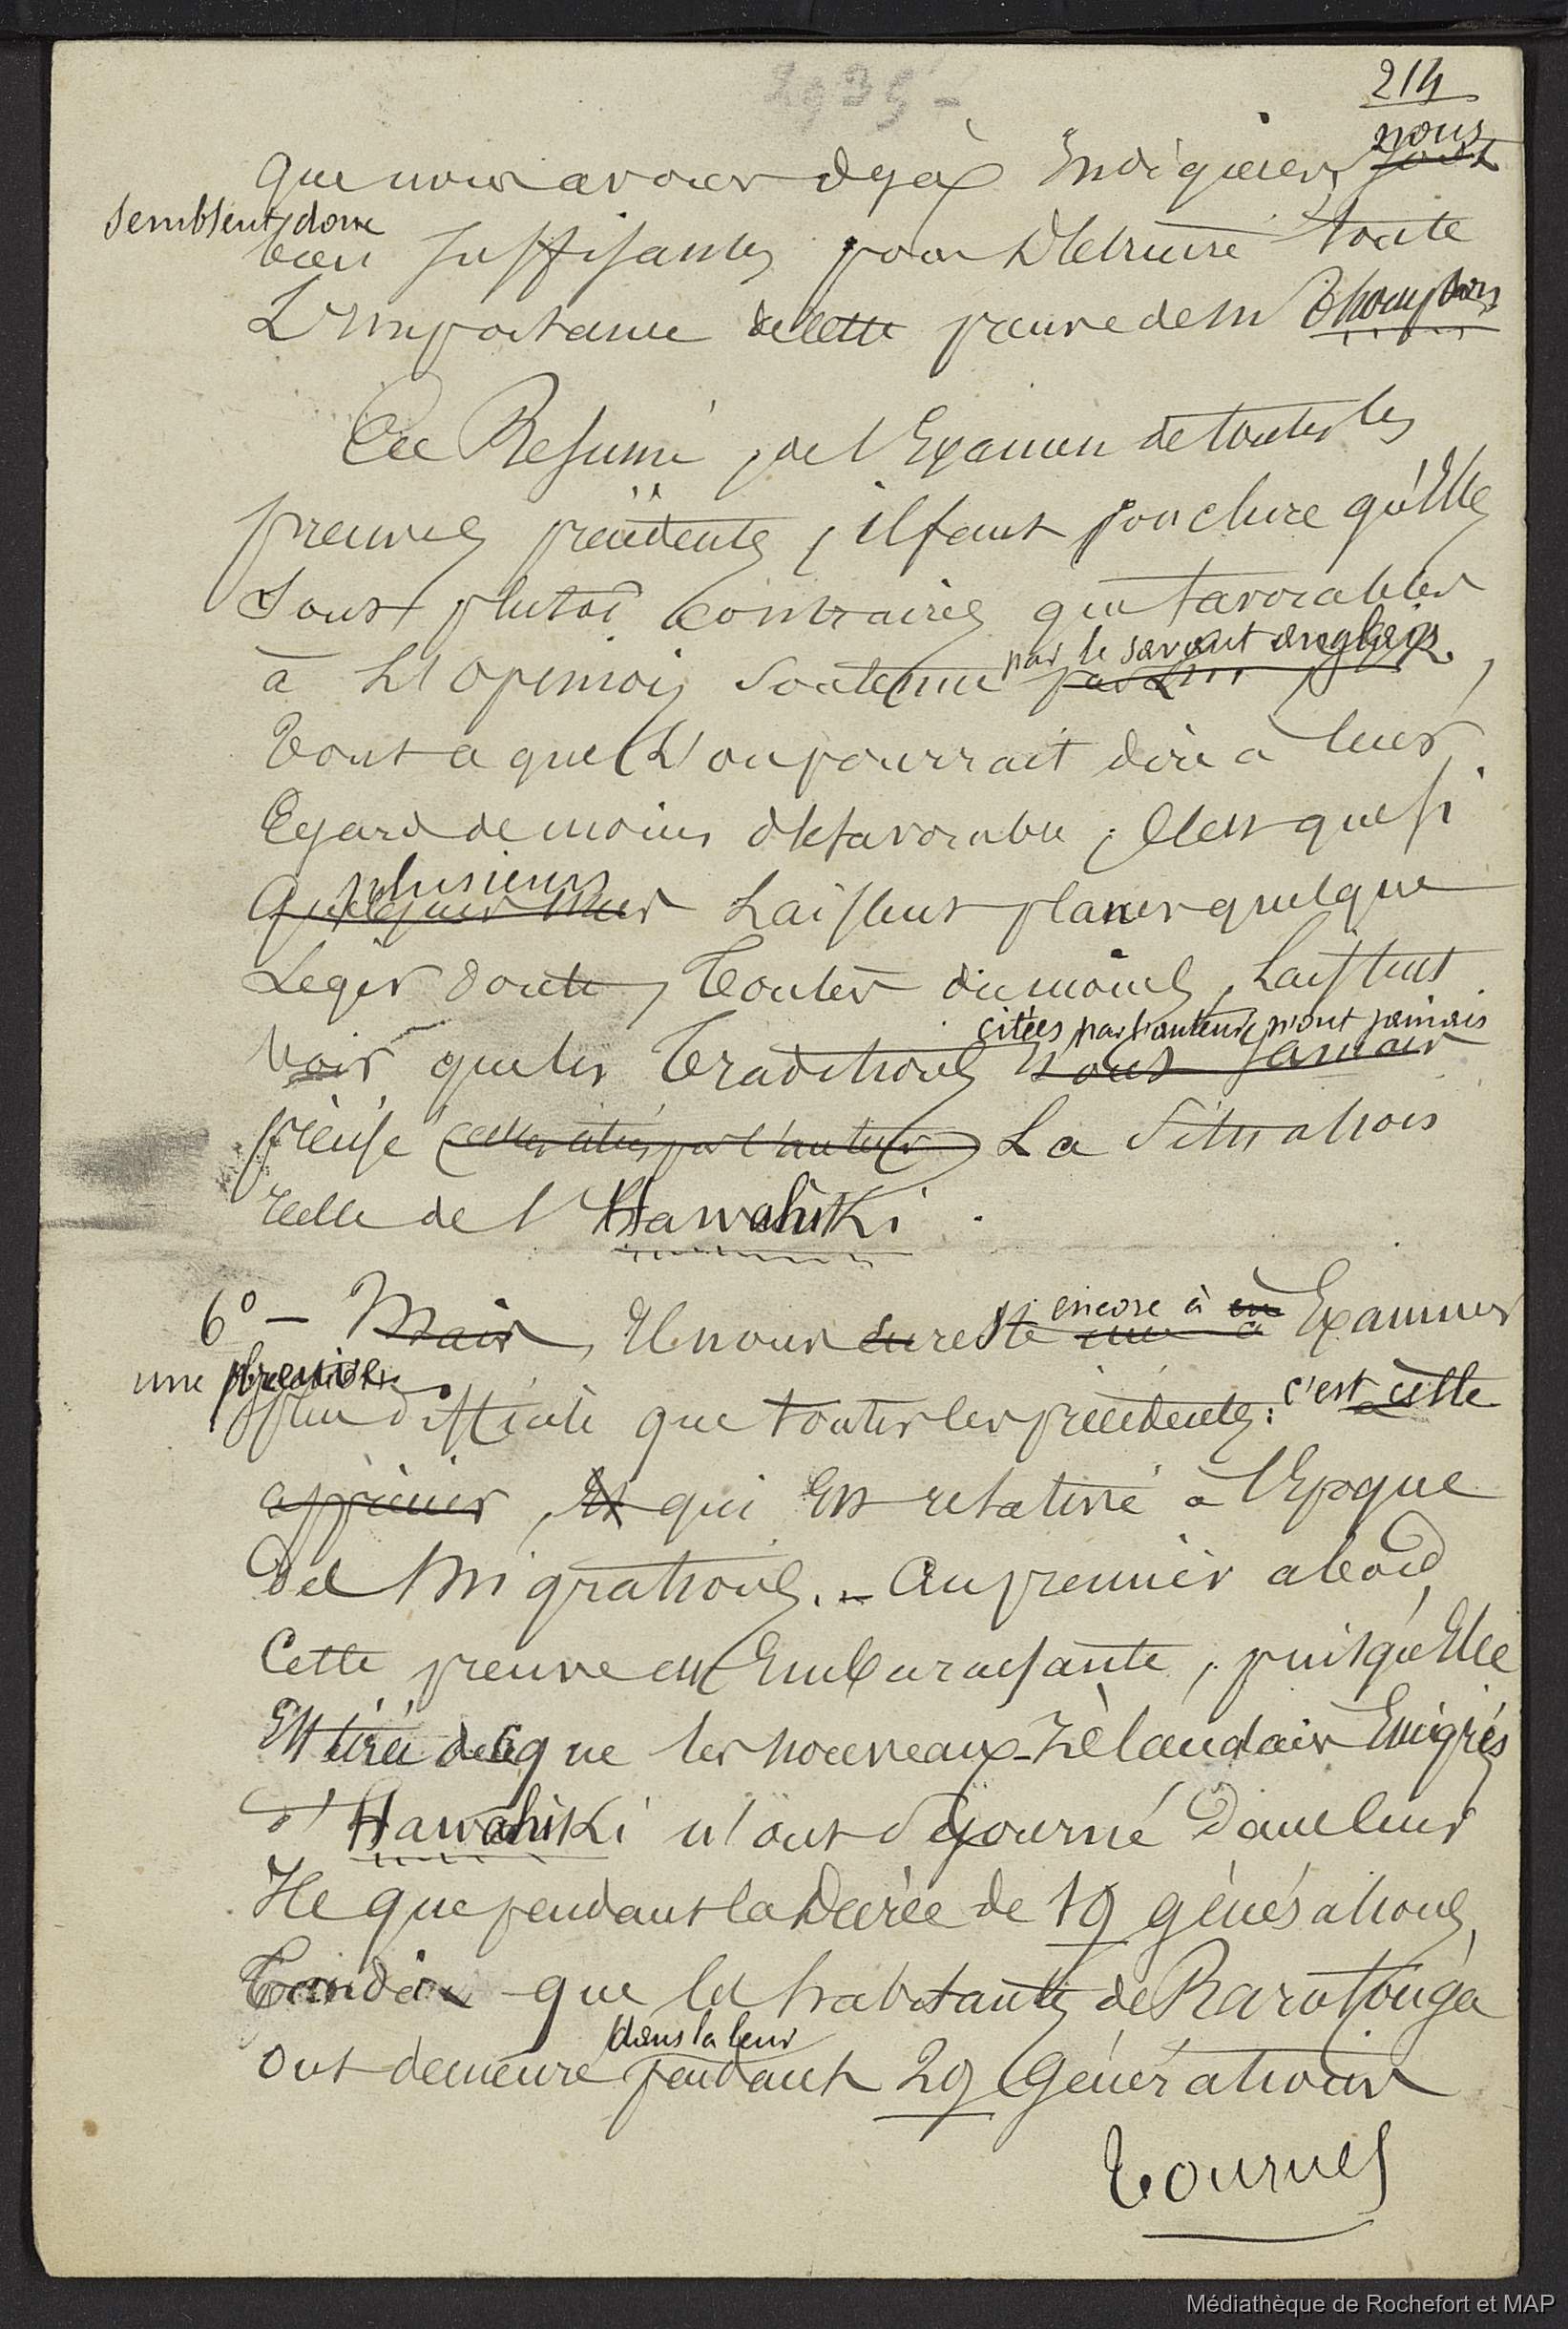 2935 -
214
que nous avons deja indiquées, ~~sont~~ nous
semblent donc
bien suffisantes pour detruire toute
L'importance de cette preuve de M Thompson
En Resumé, de l'Examen de toutes les
preuves precedentes, il faut conclure qu'elles
sont plutot contraires que favorables
à L'opinion soutenue par le savant anglais,
Tout ce que L'on pourrait dire à leur
Egard de moins defavorable, c'est que si
plusieurs
Laissent planer quelque
Leger doute, Toutes du moins, Laissent
citées par l'auteur n'ont jamais
voir que les Traditions ~~n'ont jamais~~
précisé ~~(celles citées par l'auteur)~~ La Situation
réelle de l'Hawahiki.
6° - ~~Mais~~, Il nous ~~en~~ reste encore à Examiner
une preuve
plus difficile que toutes les précédentes: c'est celle
~~apprécier~~, ~~Et~~ qui Est relative à l'Epoque
des Migrations. - Au premier abord,
Cette preuve est Embarassante, puisqu'Elle
Est tirée de ce que les nouveaux-Zèlandais Emigrés
d'Hawahiki n'ont séjourné dans leur
Ile que pendant la Durée de 19 générations,
Tandis que les habitants de Rarotonga
ont demeuré dans la leur
pendant 29 Générations
Tournez
Médiathèque de Rochefort et MAP